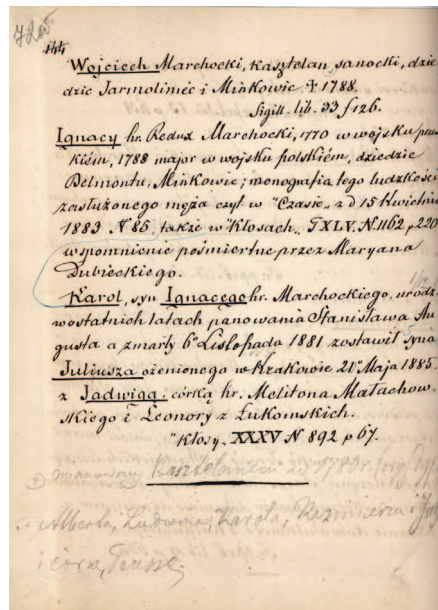 144
Wojciech Marchocki, kasztelan sanocki, dzie
dzic Jarmoliniec i Minkowic ✝ 1788.
Sigill. lib. 33 f 126.
Ignacy hr. Redux Marchocki, 1770 w wojsku prus
kiém, 1788 major w wojsku polskiém, dziedzic
Belmontu, Minkowic; monografią tego ludzkości
zasłużonego męża czyt. w "Czasie„ z d 15 Kwietnia
1883 N 85, także w "Kłosach„ T XLV. N. 1162 p 220
wspomnienie pośmiertne przez Maryana
Dubieckiego.
Karol, syn Ignacego hr. Marchockiego, urodz.
w ostatnich latach panowania Stanisława Au
gusta a zmarły 6º Listopada 1881 zostawił syna
Juliusza ożenionego w Krakowie 21º Maja 1885.
z Jadwigą, córką hr. Melitona Małachow
skiego i Leonory z Łukomskich.
"Kłosy„ XXXV N 892 p 67.
mianowany Kasztelanem 1780 r.
Alberta, Ludwika, Karola, Kazimierza i
i córa,